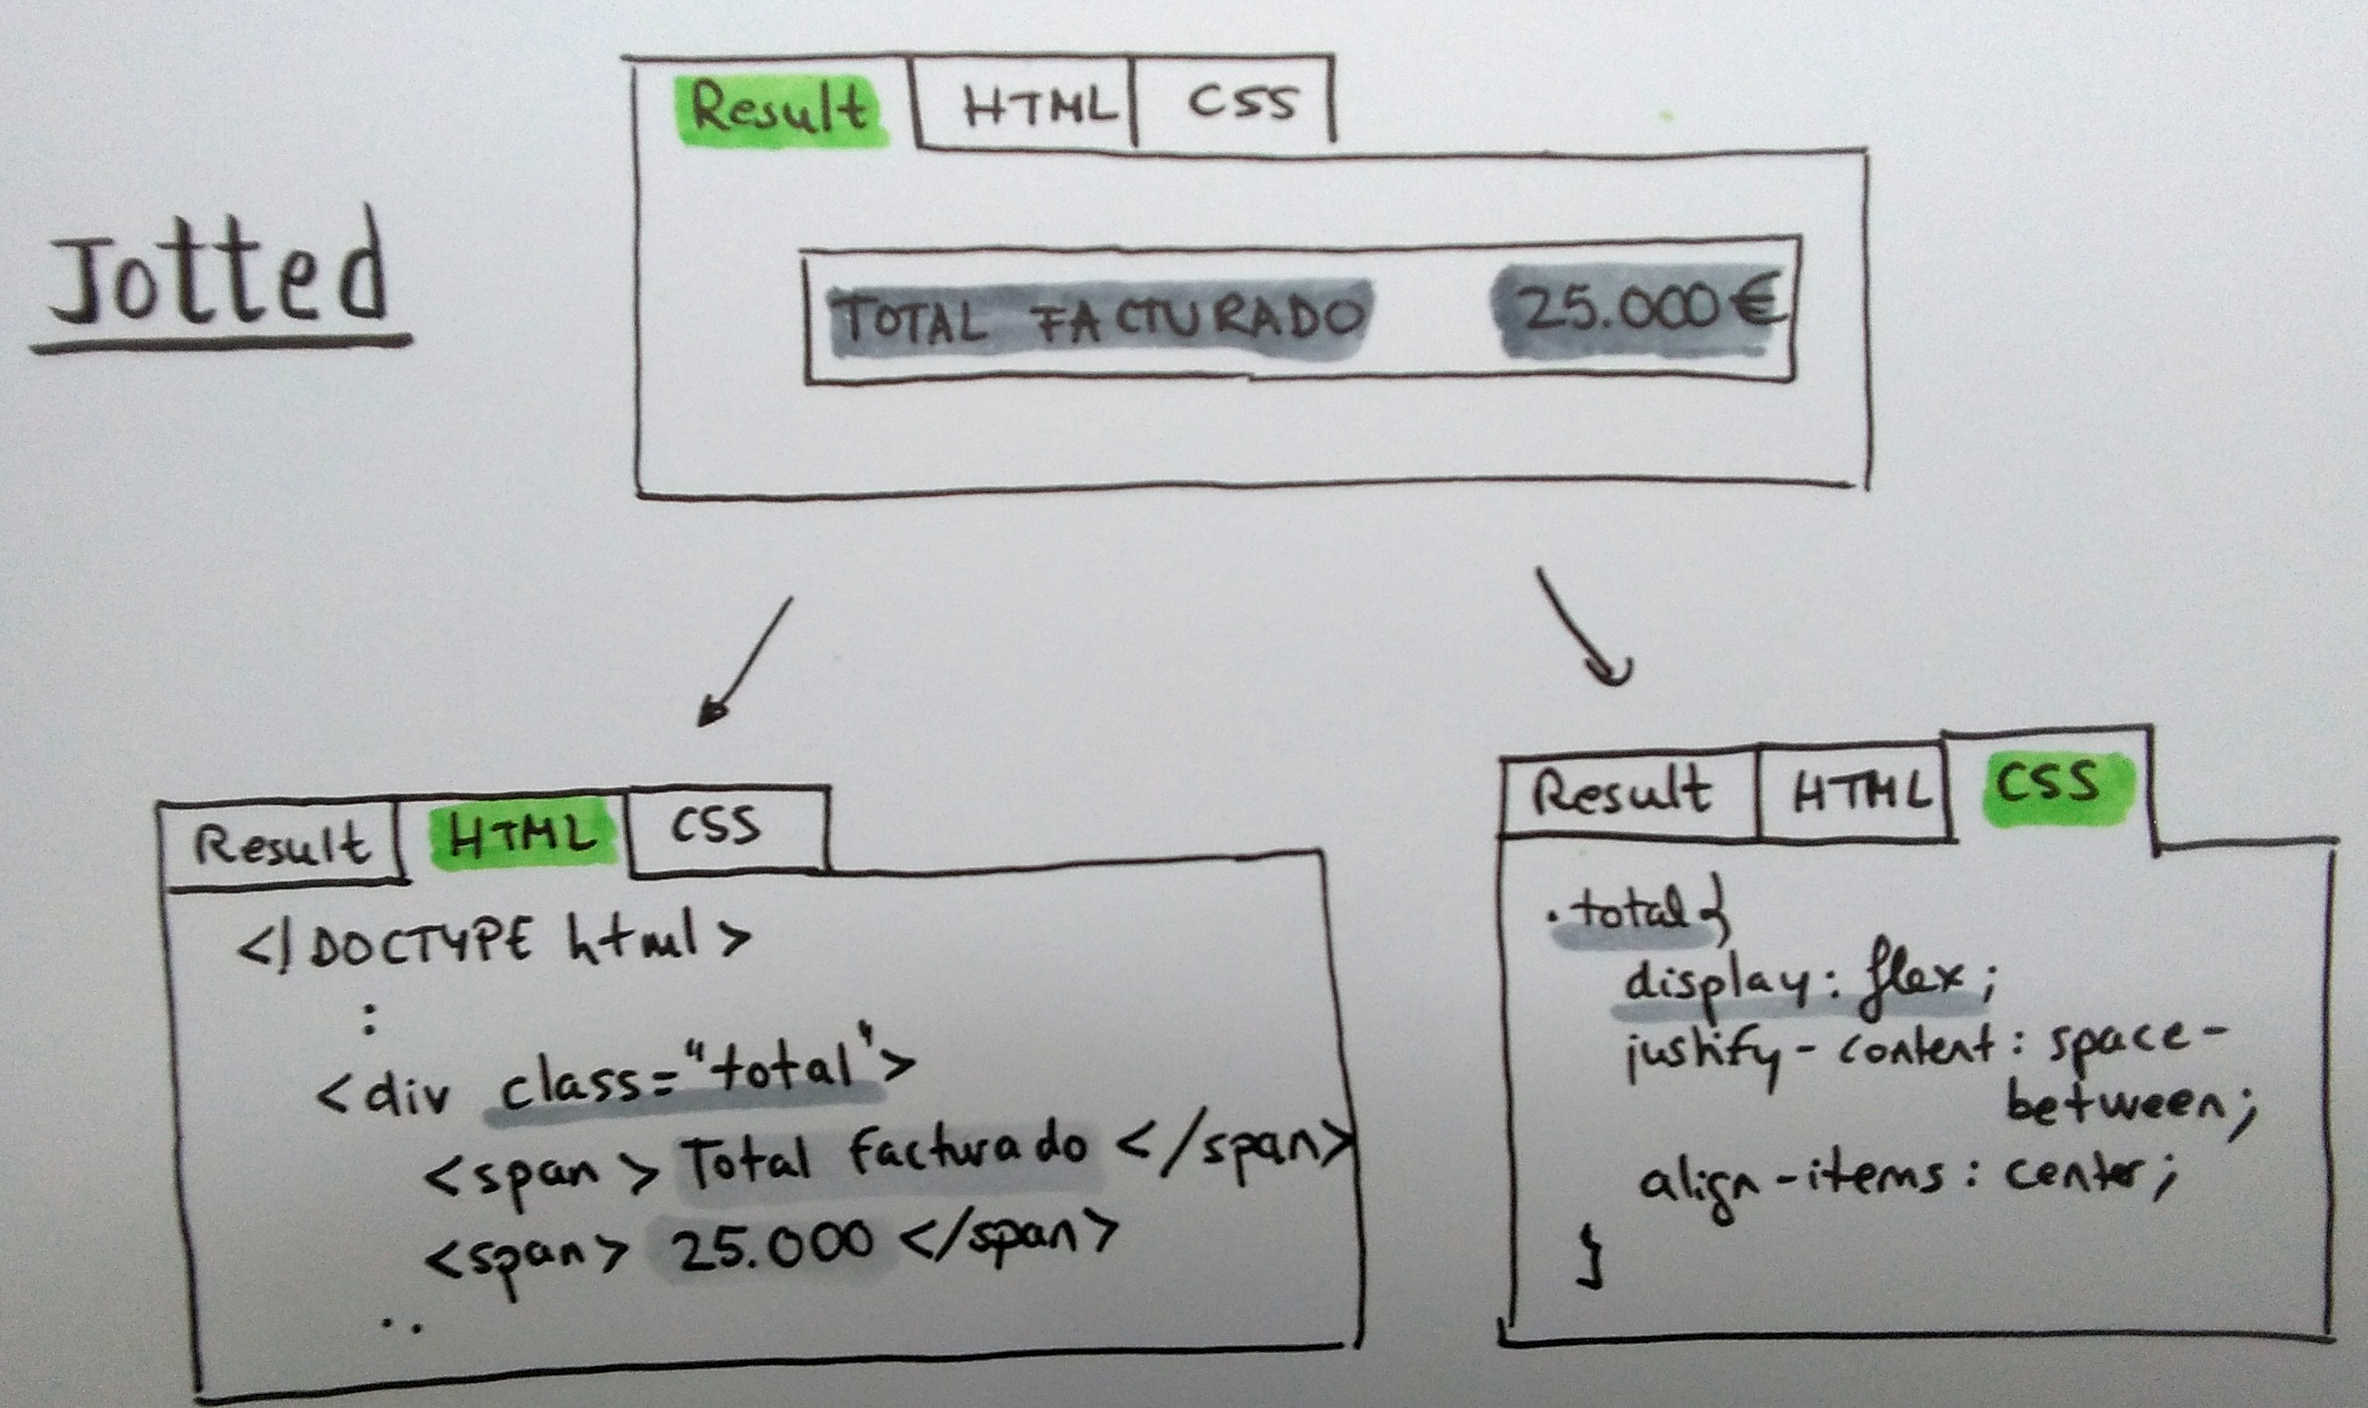 Jotted
Result HTML CSS
TOTAL FACTURADO 25.000€
Result HTML CSS
<!DOCTYPE html>
:
<div class="total">
<span> Total Facturado </span>
<span> 25.000 </span>
..
Result HTML CSS
.total{
display: flex;
justify-content: space-
between;
align-items: center;
}